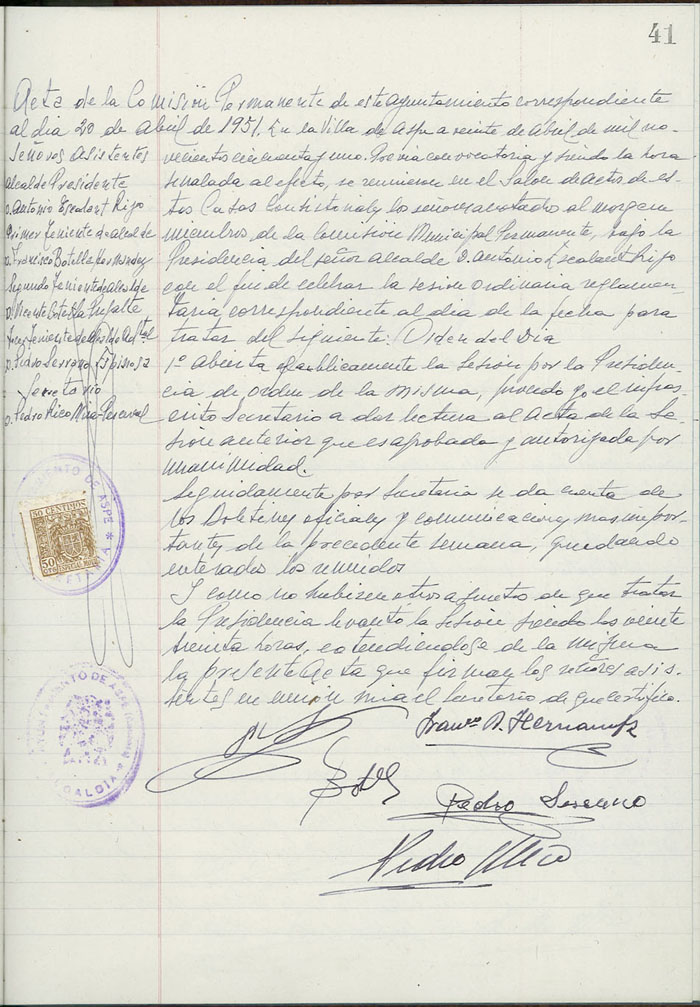 41
Acta de la Comisión Permanente de este Ayuntamiento correspondiente
al dia 20 de Abril de 1951. En la Villa de Aspe a veinte de Abril de mil no-
Señores Asistentes
Alcalde Presidente
D. Antonio Escolant Rijo
Primer Teniente de Alcalde
D. Francisco Botella Hernández
Segundo Teniente de Alcalde
D. Vicente Botella
Tercer Teniente de Alcalde
D. Pedro Serrano Espinosa
Secretario
D. Pedro Rico Mira-Perceval
vecientos cincuenta y uno. Previa convocatoria y siendo la hora
señalada al efecto, se reunieron en el Salon de Actos de es-
tas Casas Consistoriales los señores anotados al margen
miembros de la Comisión Municipal Permanente, bajo la
Presidencia del señor Alcalde D. Antonio Escolant Rijo
con el fin de celebrar la sesion ordinaria reglamen-
taria correspondiente al dia de la fecha para
tratar del siguiente: Orden del Dia
1º Abierta publicamente la Sesion por la Presiden-
cia de orden de la misma, procedo yo el infras-
crito Secretario a dar lectura al Acta de la Se-
sion anterior que es aprobada y autorizada por
unanimidad.
Seguidamente por Secretaria se da cuenta de
los Boletines oficiales y comunicaciones mas impor-
tantes de la precedente semana, quedando
enterados los reunidos.
Y como no hubieren otros asuntos de que tratar
la Presidencia levantó la sesion siendo las veinte
treinta horas, extendiendose de la misma
la presente Acta que firman los señores asis-
tentes en union mia el Secretario de que certifico.
AYUNTAMIENTO DE ASPE
SECRETARIA
50 CENTIMOS
50
AYUNTAMIENTO DE ASPE
ALCALDIA
Franco B. Hernandz
Pedro Serrano
Pedro Rico